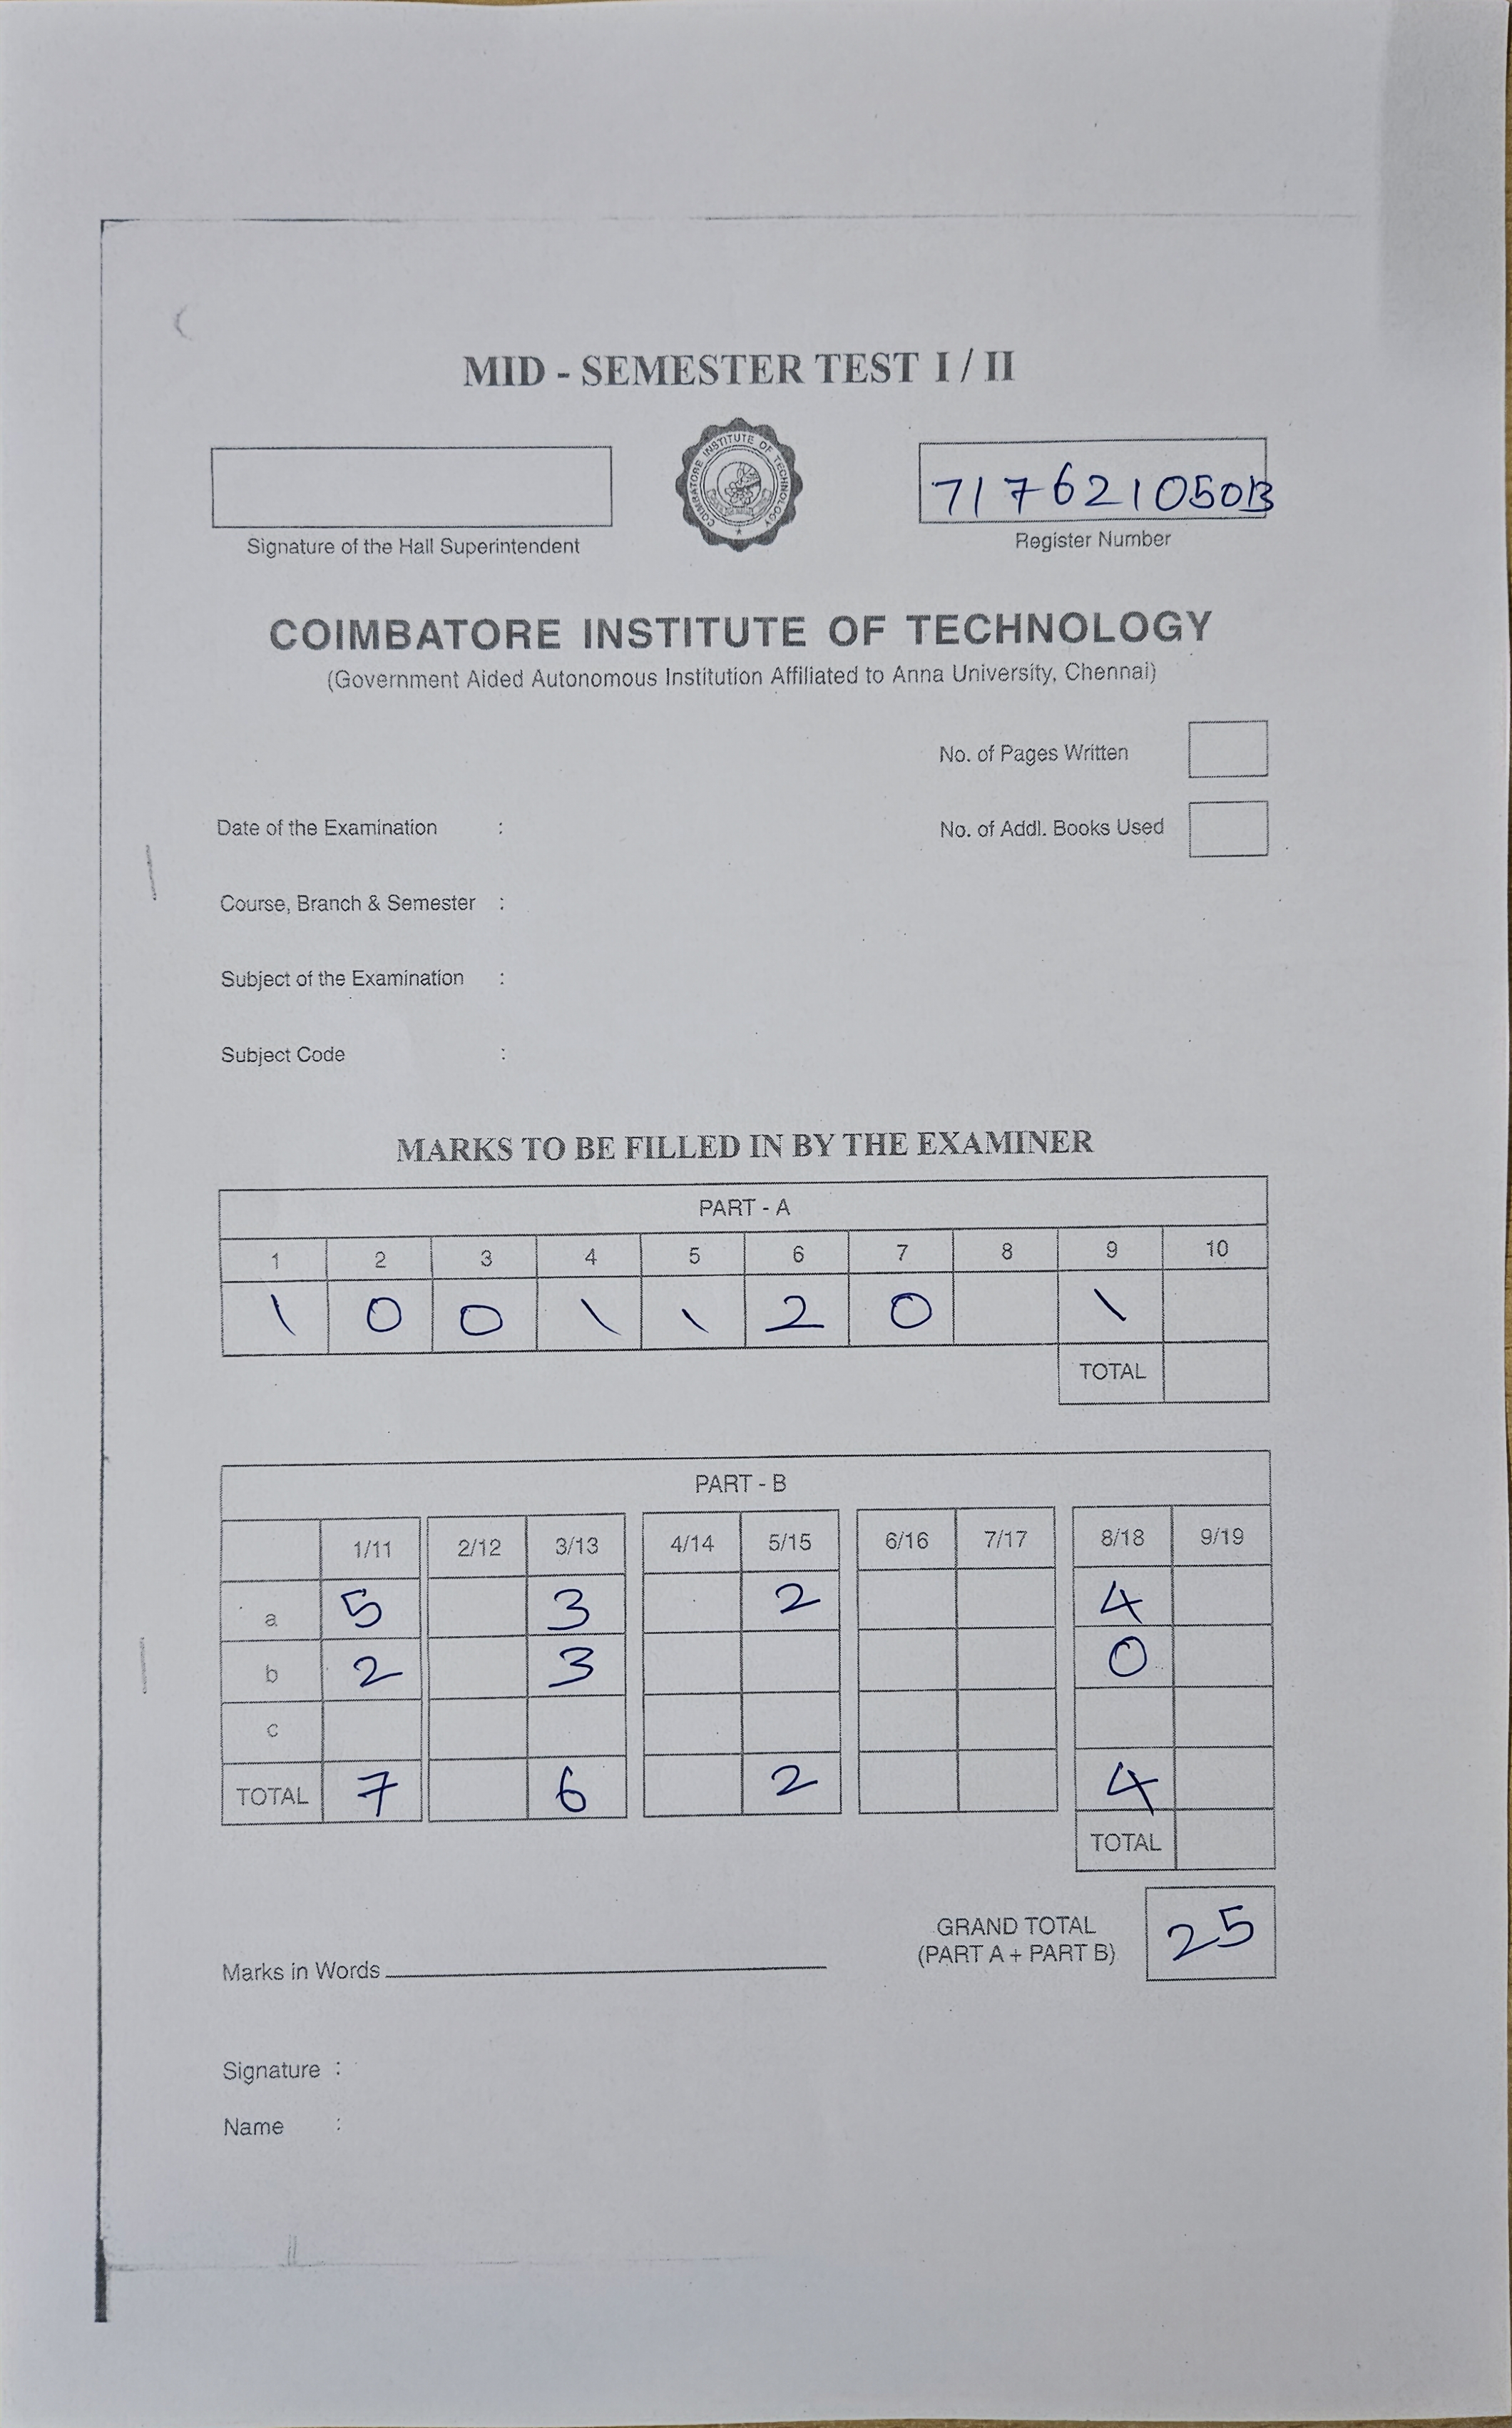 MID - SEMESTER TEST I / II
COIMBATORE INSTITUTE OF TECHNOLOGY
Signature of the Hall Superintendent
Register Number
COIMBATORE INSTITUTE OF TECHNOLOGY
(Government Aided Autonomous Institution Affiliated to Anna University, Chennai)
No. of Pages Written
Date of the Examination :
No. of Addl. Books Used
Course, Branch & Semester :
Subject of the Examination :
Subject Code :
MARKS TO BE FILLED IN BY THE EXAMINER
PART - A
1 2 3 4 5 6 7 8 9 10
1 0 0 1 1 2 0 1
TOTAL
PART - B
1/11 2/12 3/13 4/14 5/15 6/16 7/17 8/18 9/19
a 5 3 2 4
b 2 3 0
c
TOTAL 7 6 2 4
TOTAL
GRAND TOTAL
(PART A + PART B) 25
Marks in Words
Signature :
Name :